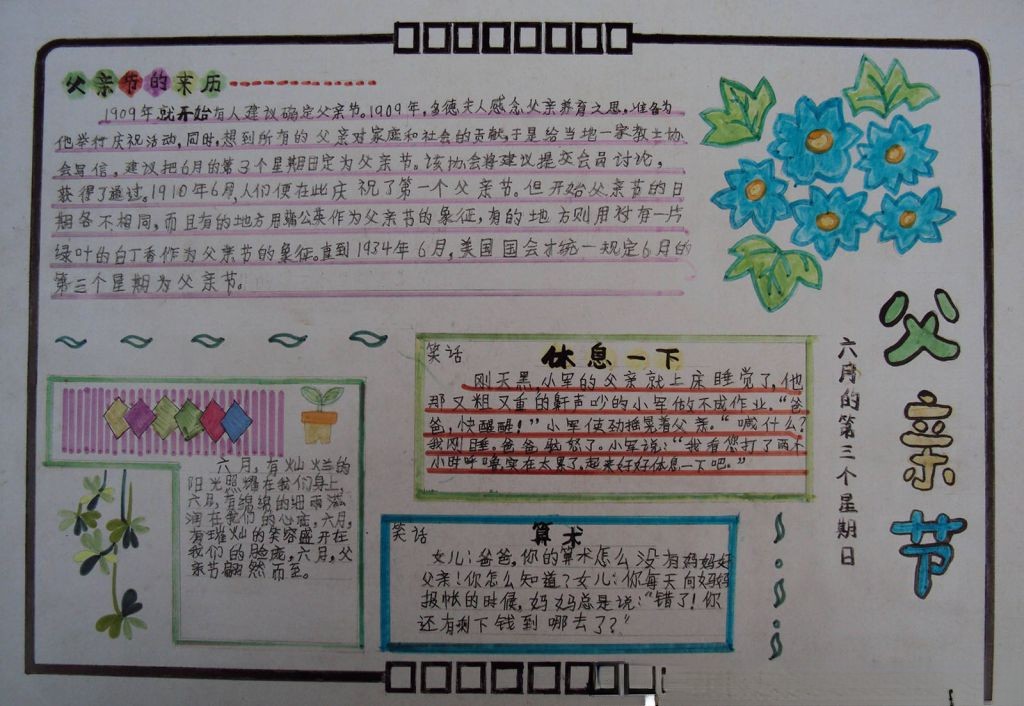 父亲节的来历
1909年就开始有人建议确定父亲节。1909年,多德夫人感念父亲养育之恩,准备为
他举行庆祝活动,同时,想到所有的父亲对家庭和社会的贡献,于是给当地一家教士协
会写信,建议把6月的第3个星期日定为父亲节。该协会将建议提交会员讨论,
获得了通过。1910年6月,人们便在此庆祝了第一个父亲节。但开始父亲节的日
期各不相同,而且有的地方用蒲公英作为父亲节的象征,有的地方则用衬有一片
绿叶的白丁香作为父亲节的象征。直到1934年6月,美国国会才统一规定6月的
第三个星期为父亲节。
父亲节
六月的第三个星期日
笑话
休息一下
刚天黑,小军的父亲就上床睡觉了,他
那又粗又重的鼾声吵的小军做不成作业。“爸
爸,快醒醒!”小军使劲摇晃着父亲。“喊什么?
我刚睡。爸爸恼怒了。小军说:“我看您打了两个
小时呼噜,实在太累了,起来好好休息一下吧。”
六月,有灿烂的
阳光照耀在我们身上,
六月,有绵绵的细雨滋
润在我们的心底,六月,
有璀灿的笑容盛开在
我们的脸庞,六月,父
亲节翩然而至。
笑话
算术
女儿:爸爸,你的算术怎么没有妈妈好
父亲!你怎么知道?女儿:你每天向妈妈
报帐的时候,妈妈总是说:“错了!你
还有剩下钱到哪去了?”